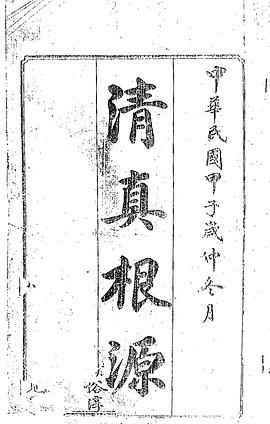 中華民國甲子歲仲冬月
清真根源